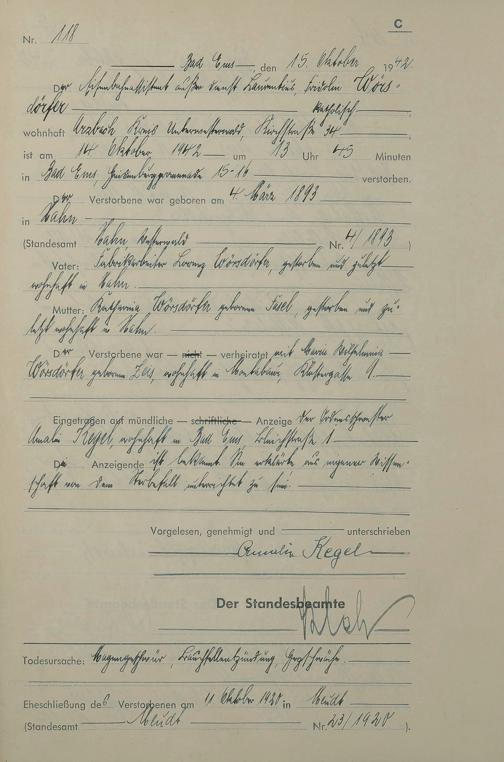 C
Nr. 118
Bad Ems, den 15. Oktober 1942
Der Eisenbahnassistent außer Dienst Laurentius, Fridolin Wörs-
dörfer katholisch
wohnhaft Arzbach Kreis Unterwesterwald, Kirchstraße 34
ist am 14 Oktober 1942 um 13 Uhr 45 Minuten
in Bad Ems, 15-16 verstorben.
Der Verstorbene war geboren am 4. März 1893
in Hahn
(Standesamt Hahn Westerwald Nr. 4/1893)
Vater: Fabrikarbeiter Lorenz Wörsdörfer, gestorben und zuletzt
wohnhaft in Hahn.
Mutter: Katharina Wörsdörfer geborene Fasel, gestorben und zu-
letzt wohnhaft in Hahn.
Der Verstorbene war — nicht — verheiratet mit Maria Wilhelmina
Wörsdörfer geborene, wohnhaft in Montabaur,
Eingetragen auf mündliche — schriftliche — Anzeige der Ordensschwester
Amalie Kegel, wohnhaft in Bad Ems, 1
Die Anzeigende ist bekannt. Sie erklärte aus eigener Wissen-
schaft von dem Sterbefall unterrichtet zu sein.
Vorgelesen, genehmigt und unterschrieben
Amalie Kegel
Der Standesbeamte
Todesursache: Magengeschwür, Bauchfellentzündung, Herzschwäche.
Eheschließung des Verstorbenen am 11 Oktober 1920 in Meudt
(Standesamt Meudt Nr. 23/1920).